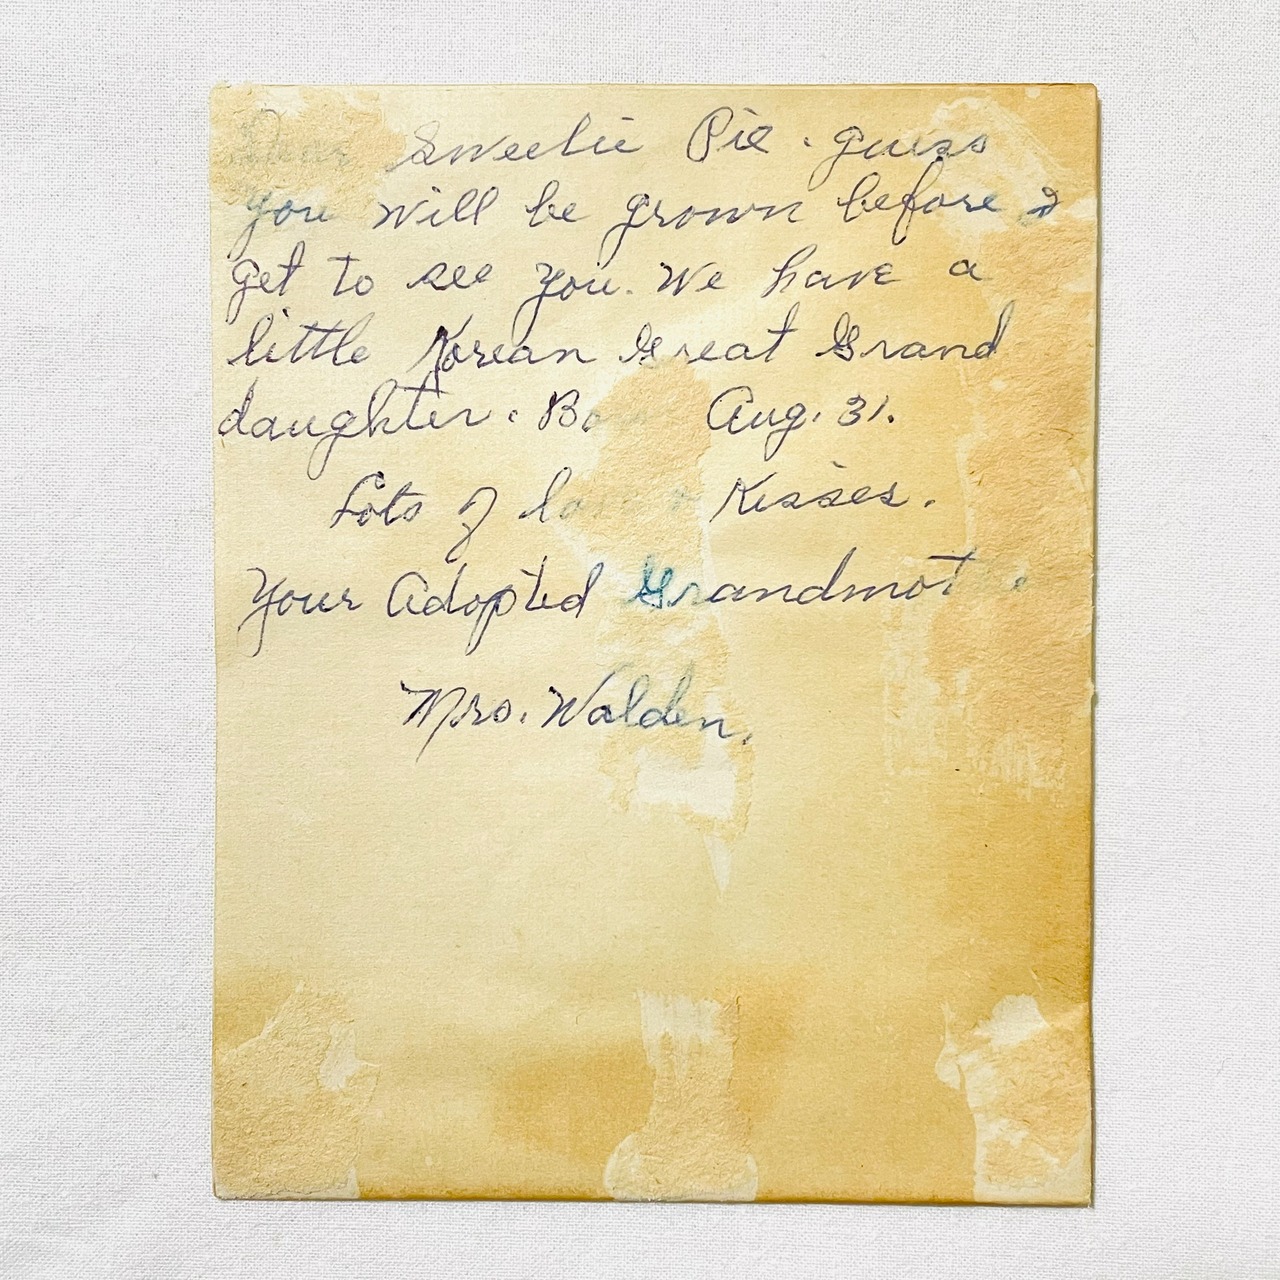 Dear Sweetie Pie. Guess
you will be grown before I
get to see you. We have a
little Korean Great Grand
daughter. Born Aug. 31.
Lots of love & Kisses.
Your Adopted Grandmot
Mrs. Walden.